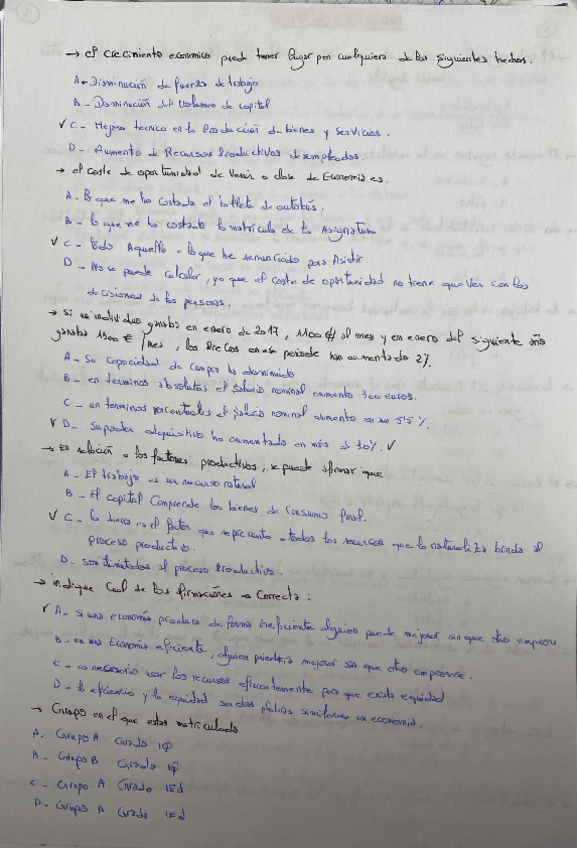 → el crecimiento economico puede tener lugar por cualquiera de los siguientes hechos.
A- Disminución de fuerza de trabajo
B - Disminución del Volumen de capital
✓ C - Mejora tecnica en la Producción de bienes y Servicios.
D - Aumento de Recursos Productivos desempleados.
→ el coste de oportunidad de Venir a clase de Economia es.
A - lo que me ha costado el billete de autobús.
B - lo que me ha costado la matricula de la Asignatura
✓ C - todo Aquello a lo que he renunciado para Asistir
D - No se puede calcular, ya que el coste de oportunidad no tiene que ver con las
decisiones de las personas.
→ si un individuo ganaba en enero de 2017, 1100 € al mes y en enero del siguiente año
ganaba 1300 € /mes, los precios en ese periodo han aumentado 2%.
A - Su capacidad de compra ha disminuido
B - en terminos absolutos el salario nominal aumento 300 euros.
C - en terminos porcentuales el salario nominal aumento en un 5'5 %.
✓ D - Su poder adquisitivo ha aumentado en más de 10%. ✓
→ En relación a los factores productivos, se puede afirmar que
A - El trabajo es un recurso natural
B - El capital Comprende los bienes de Consumo final.
✓ C - la tierra es el factor que representa a todos los recursos que la naturaleza brinda al
proceso productivo.
D - son limitados al proceso Productivo.
→ indique Cual de las afirmaciones es Correcta :
✓ A - si una economía produce de forma ineficiente alguien puede mejorar sin que otro empeore
B - en una Economia eficiente, alguien puede mejorar sin que otro empeorase.
C - es necesario usar los recursos eficientemente para que exista equidad
D - la eficiencia y la equidad son dos palabras similares en economia.
→ Grupo en el que estas matriculado
A - Grupo A Grado IQ
B - Grupo B Grado IQ
C - Grupo A Grado IEd
D - Grupo B Grado IEd